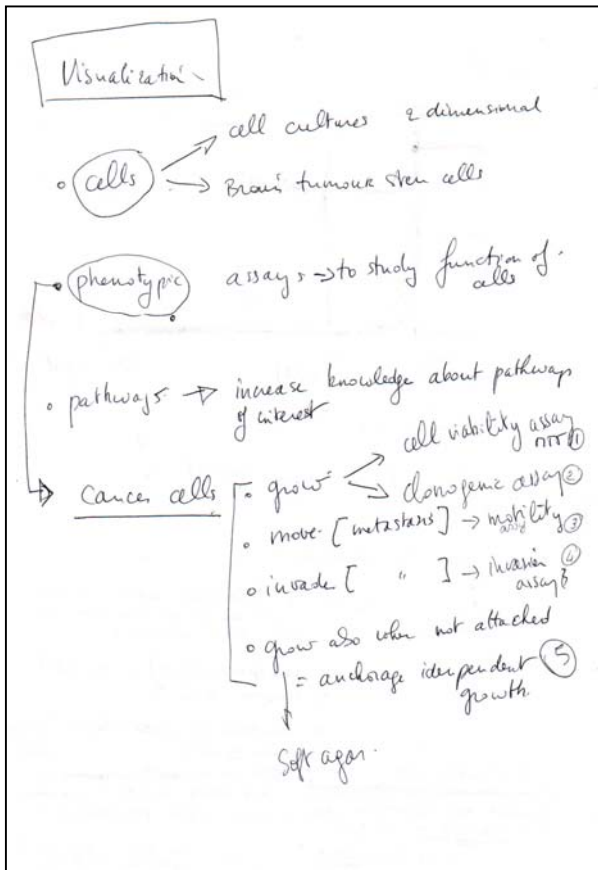 Visualization
cell cultures 2 dimensional
• cells
→ Brain tumour stem cells
• phenotypic assays → to study function of
cells
• pathways → increase knowledge about pathways
of interest
cell viability assay
MTT ①
Cancer cells • grow
→ clonogenic assay ②
• move [metastasis] → motility ③
assay
• invade [ " ] → invasion ④
assay
• grow also when not attached
= anchorage independent ⑤
growth.
Soft agar.